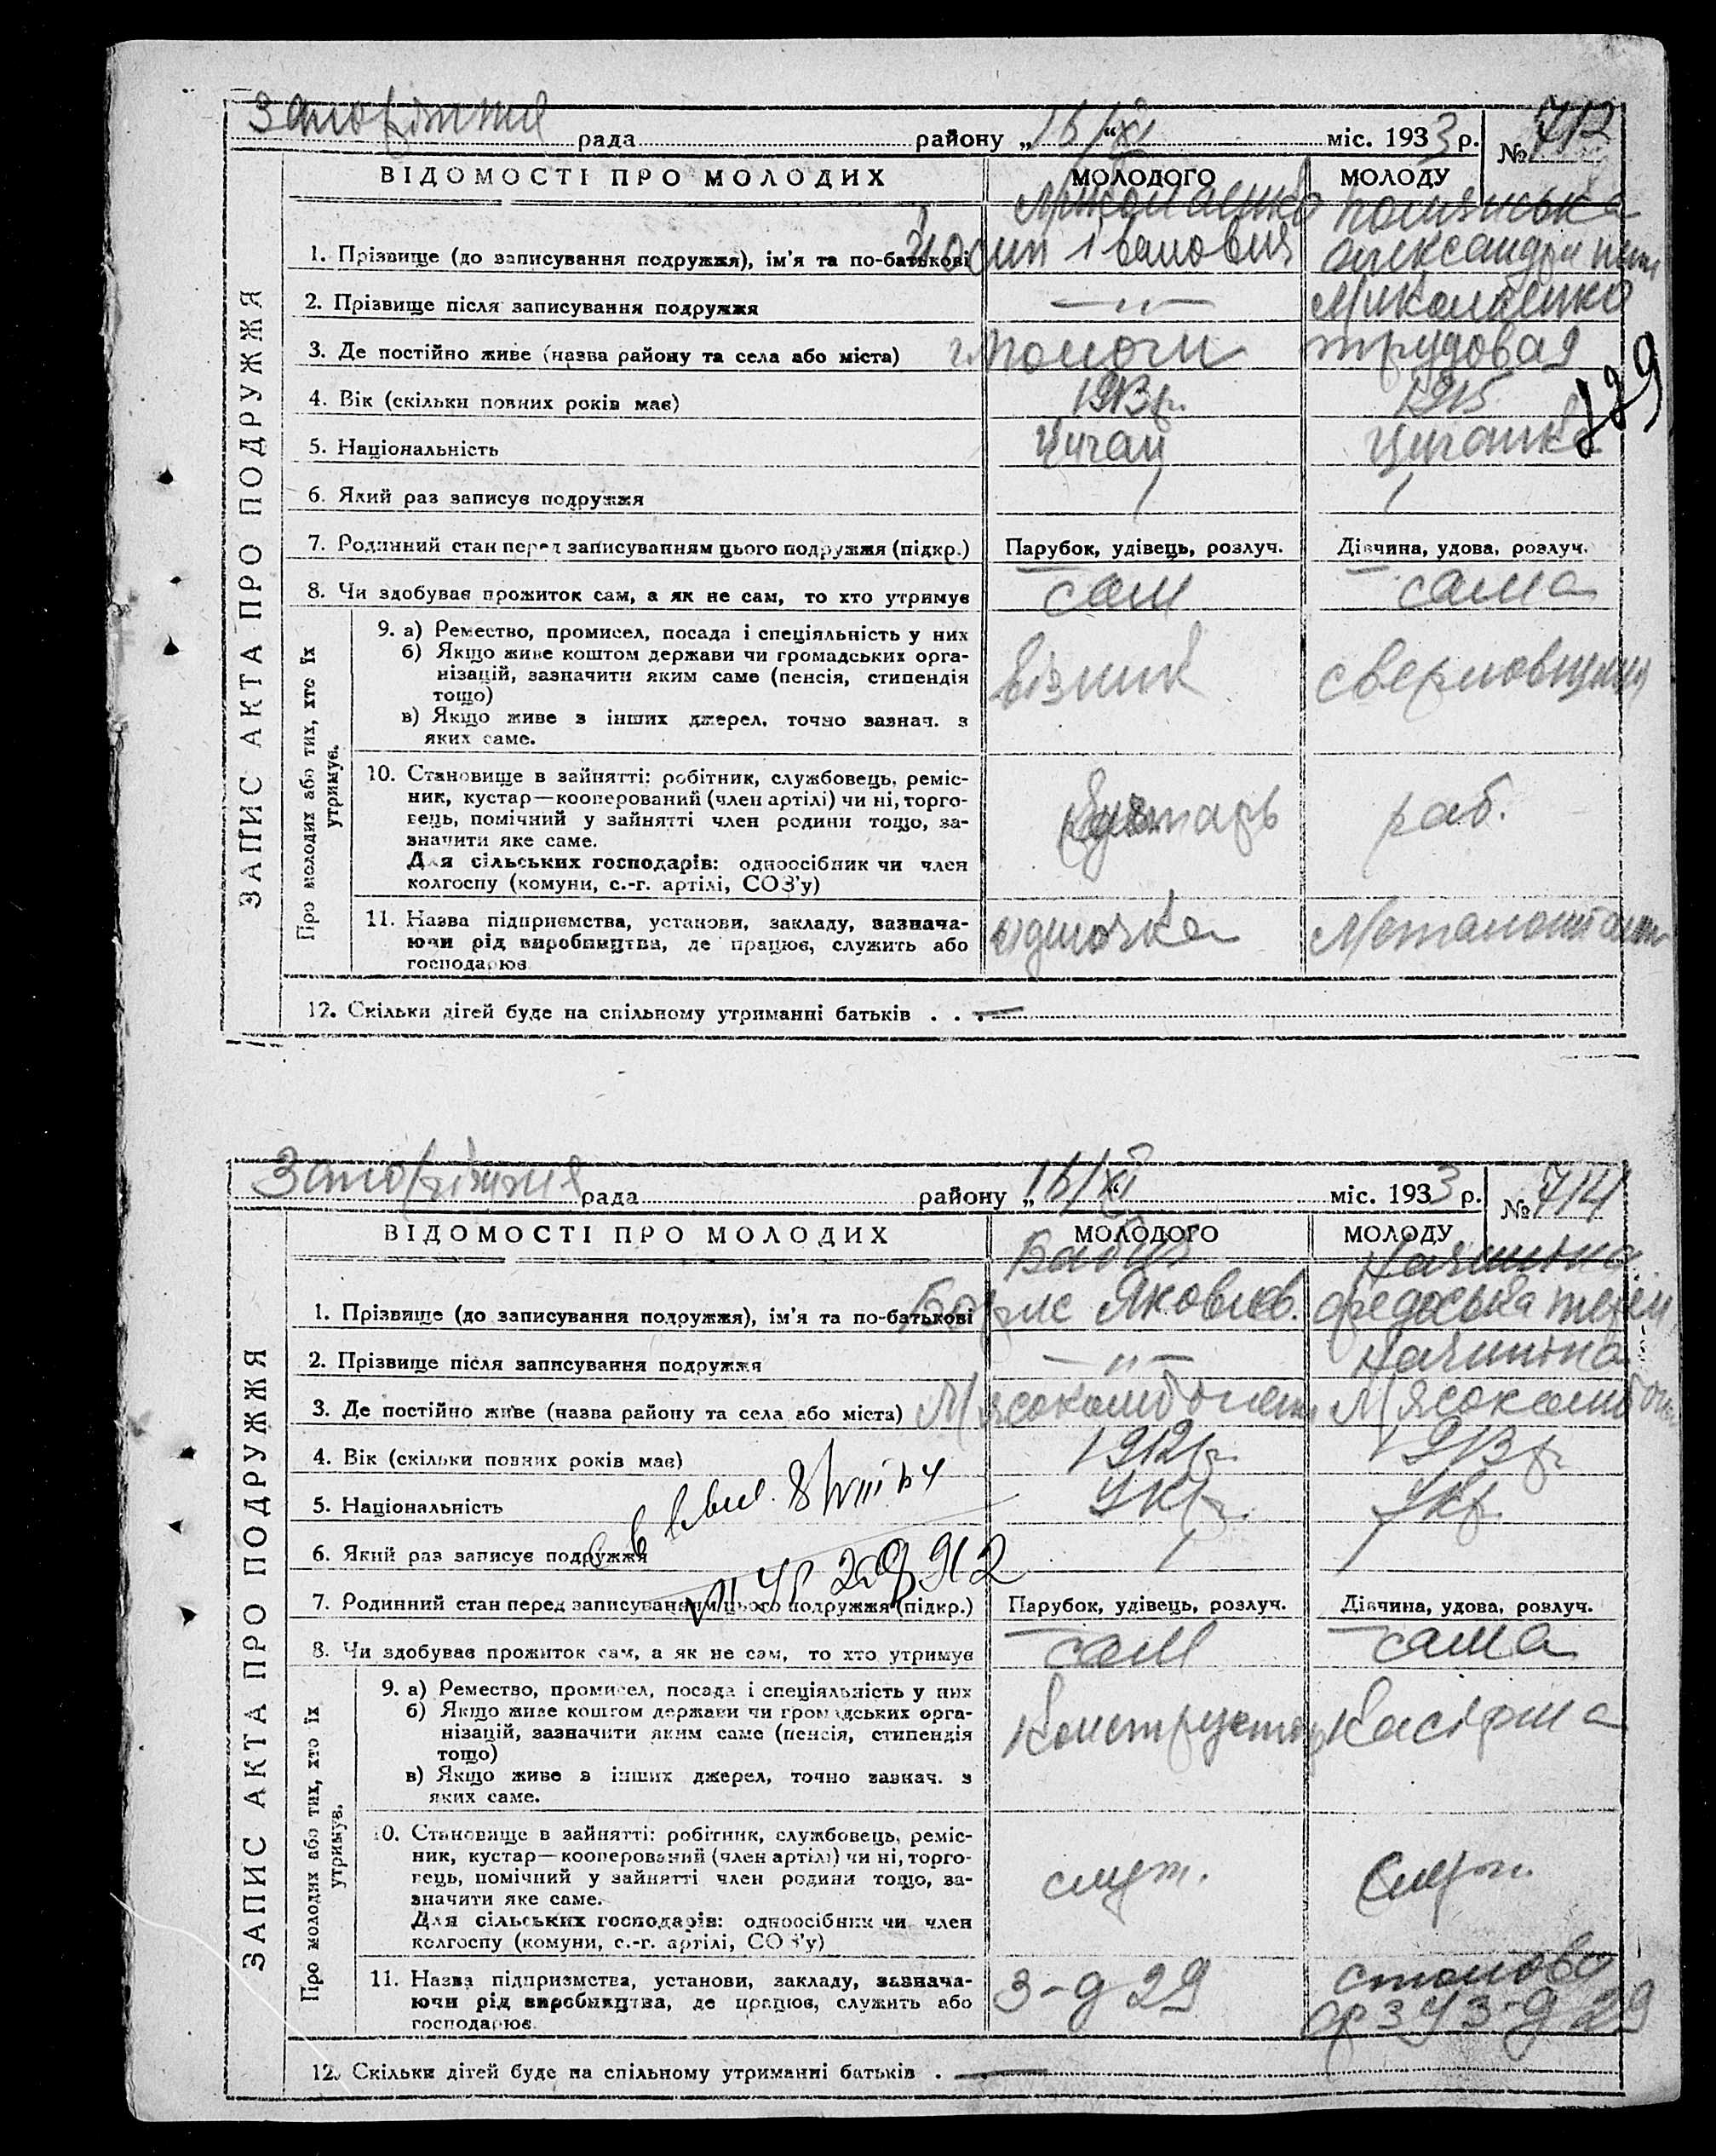 Запоріжжя рада району „16/XI“ міс. 1933 р. № 712
ЗАПИС АКТА ПРО ПОДРУЖЖЯ
ВІДОМОСТІ ПРО МОЛОДИХ МОЛОДОГО МОЛОДУ
1. Прізвище (до записування подружжя), ім'я та по-батькові Йосип Іванович Олександра
2. Прізвище після записування подружжя — „ — Миколаенко
3. Де постійно живе (назва району та села або міста) трудовая
4. Вік (скільки повних років має) 1913 р. 1915
129
5. Національність Циган Циганка
6. Який раз записує подружжя 1 1
7. Родинний стан перед записуванням цього подружжя (підкр.) Парубок, удівець, розлуч. Дівчина, удова, розлуч.
8. Чи здобуває прожиток сам, а як не сам, то хто утримує сам сама
Про молодих або тих, хто їх утримує.
9. а) Ремество, промисел, посада і спеціяльність у них
б) Якщо живе коштом держави чи громадських орга-
нізацій, зазначити яким саме (пенсія, стипендія
тощо)
в) Якщо живе з інших джерел, точно зазнач. з
яких саме.
візник сверловщиця
10. Становище в зайнятті: робітник, службовець, реміс-
ник, кустар—кооперований (член артілі) чи ні, торго-
вець, помічний у зайнятті член родини тощо, за-
значити яке саме.
Для сільських господарів: одноосібник чи член
колгоспу (комуни, с.-г. артілі, СОЗ'у)
Кустарь раб.
11. Назва підприємства, установи, закладу, зазнача-
ючи рід виробництва, де працює, служить або
господарює
одиночка
12. Скільки дітей буде на спільному утриманні батьків . . . —
Запоріжжя рада району „16/XI“ міс. 1933 р. № 714
ЗАПИС АКТА ПРО ПОДРУЖЖЯ
ВІДОМОСТІ ПРО МОЛОДИХ МОЛОДОГО МОЛОДУ
1. Прізвище (до записування подружжя), ім'я та по-батькові Борис Яковлев. Федоська
2. Прізвище після записування подружжя — „ —
3. Де постійно живе (назва району та села або міста) Мясокомбинат Мясокомбин
4. Вік (скільки повних років має) 1912 р. 1913 р.
5. Національність Укр. Укр.
6. Який раз записує подружжя 1 1
7. Родинний стан перед записуванням цього подружжя (підкр.) Парубок, удівець, розлуч. Дівчина, удова, розлуч.
8. Чи здобуває прожиток сам, а як не сам, то хто утримує сам сама
Про молодих або тих, хто їх утримує.
9. а) Ремество, промисел, посада і спеціяльність у них
б) Якщо живе коштом держави чи громадських орга-
нізацій, зазначити яким саме (пенсія, стипендія
тощо)
в) Якщо живе з інших джерел, точно зазнач. з
яких саме.
Конструктор Касірша
10. Становище в зайнятті: робітник, службовець, реміс-
ник, кустар—кооперований (член артілі) чи ні, торго-
вець, помічний у зайнятті член родини тощо, за-
значити яке саме.
Для сільських господарів: одноосібник чи член
колгоспу (комуни, с.-г. артілі, СОЗ'у)
служ. служ.
11. Назва підприємства, установи, закладу, зазнача-
ючи рід виробництва, де працює, служить або
господарює
З-д 29 З-д 29
12. Скільки дітей буде на спільному утриманні батьків . —